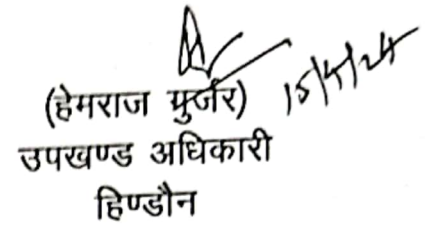 (हेमराज गुर्जर) 15/5/24
उपखण्ड अधिकारी
हिण्डौन